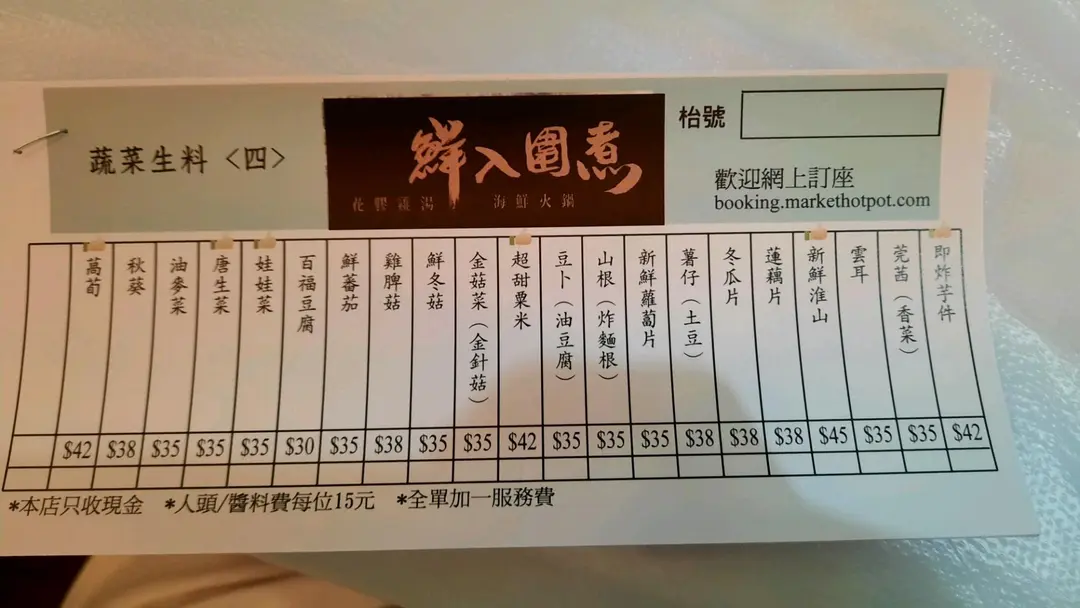 蔬菜生料〈四〉
鮮入圍煮
花膠雞湯
海鮮火鍋
枱號
歡迎網上訂座
booking.markethotpot.com
即炸芋件 $42
莞茜（香菜） $35
雲耳 $35
新鮮淮山 $45
蓮藕片 $38
冬瓜片 $38
薯仔（土豆） $38
新鮮蘿蔔片 $35
山根（炸麵根） $35
豆卜（油豆腐） $35
超甜粟米 $42
金菇菜（金針菇） $35
鮮冬菇 $35
雞脾菇 $38
鮮蕃茄 $35
百福豆腐 $30
娃娃菜 $35
唐生菜 $35
油麥菜 $35
秋葵 $38
萵荀 $42
*本店只收現金 *人頭/醬料費每位15元 *全單加一服務費